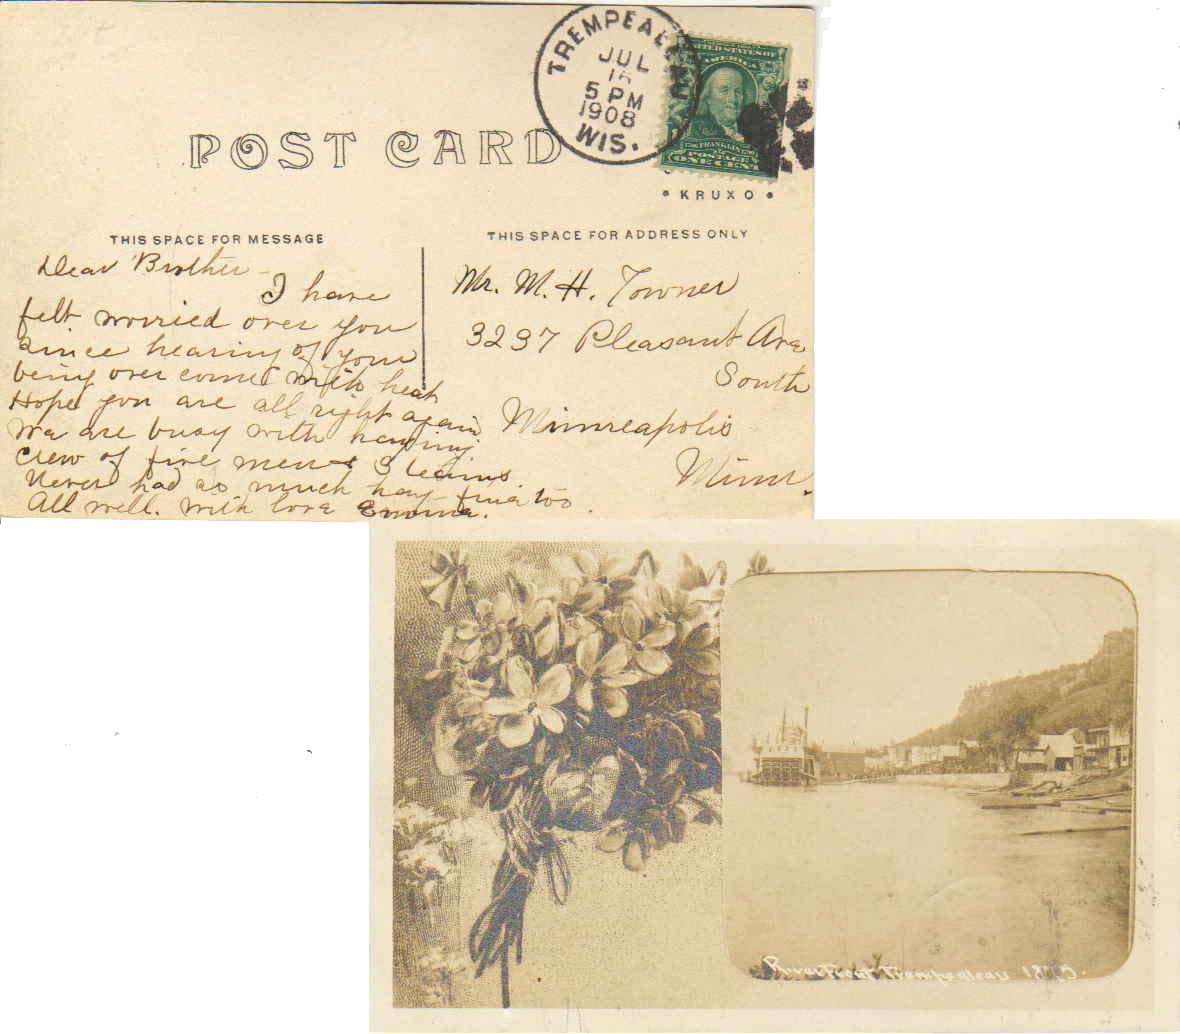 TREMPEALEAU
JUL
16
5 PM
1908
WIS.
UNITED STATES OF
AMERICA
FRANKLIN
POSTAGE
ONE CENT
POST CARD
• KRUXO •
THIS SPACE FOR MESSAGE
THIS SPACE FOR ADDRESS ONLY
Dear Brother –
I have
felt worried over you
since hearing of your
being over come with heat
Hope you are all right again
We are busy with haying
Crew of five men & 3 teams.
Never had so much hay – fine too.
All well. With love Emma.
Mr. M. H. Towner
3237 Pleasant Ave
South
Minneapolis
Minn.
River Front Trempealeau 1875.